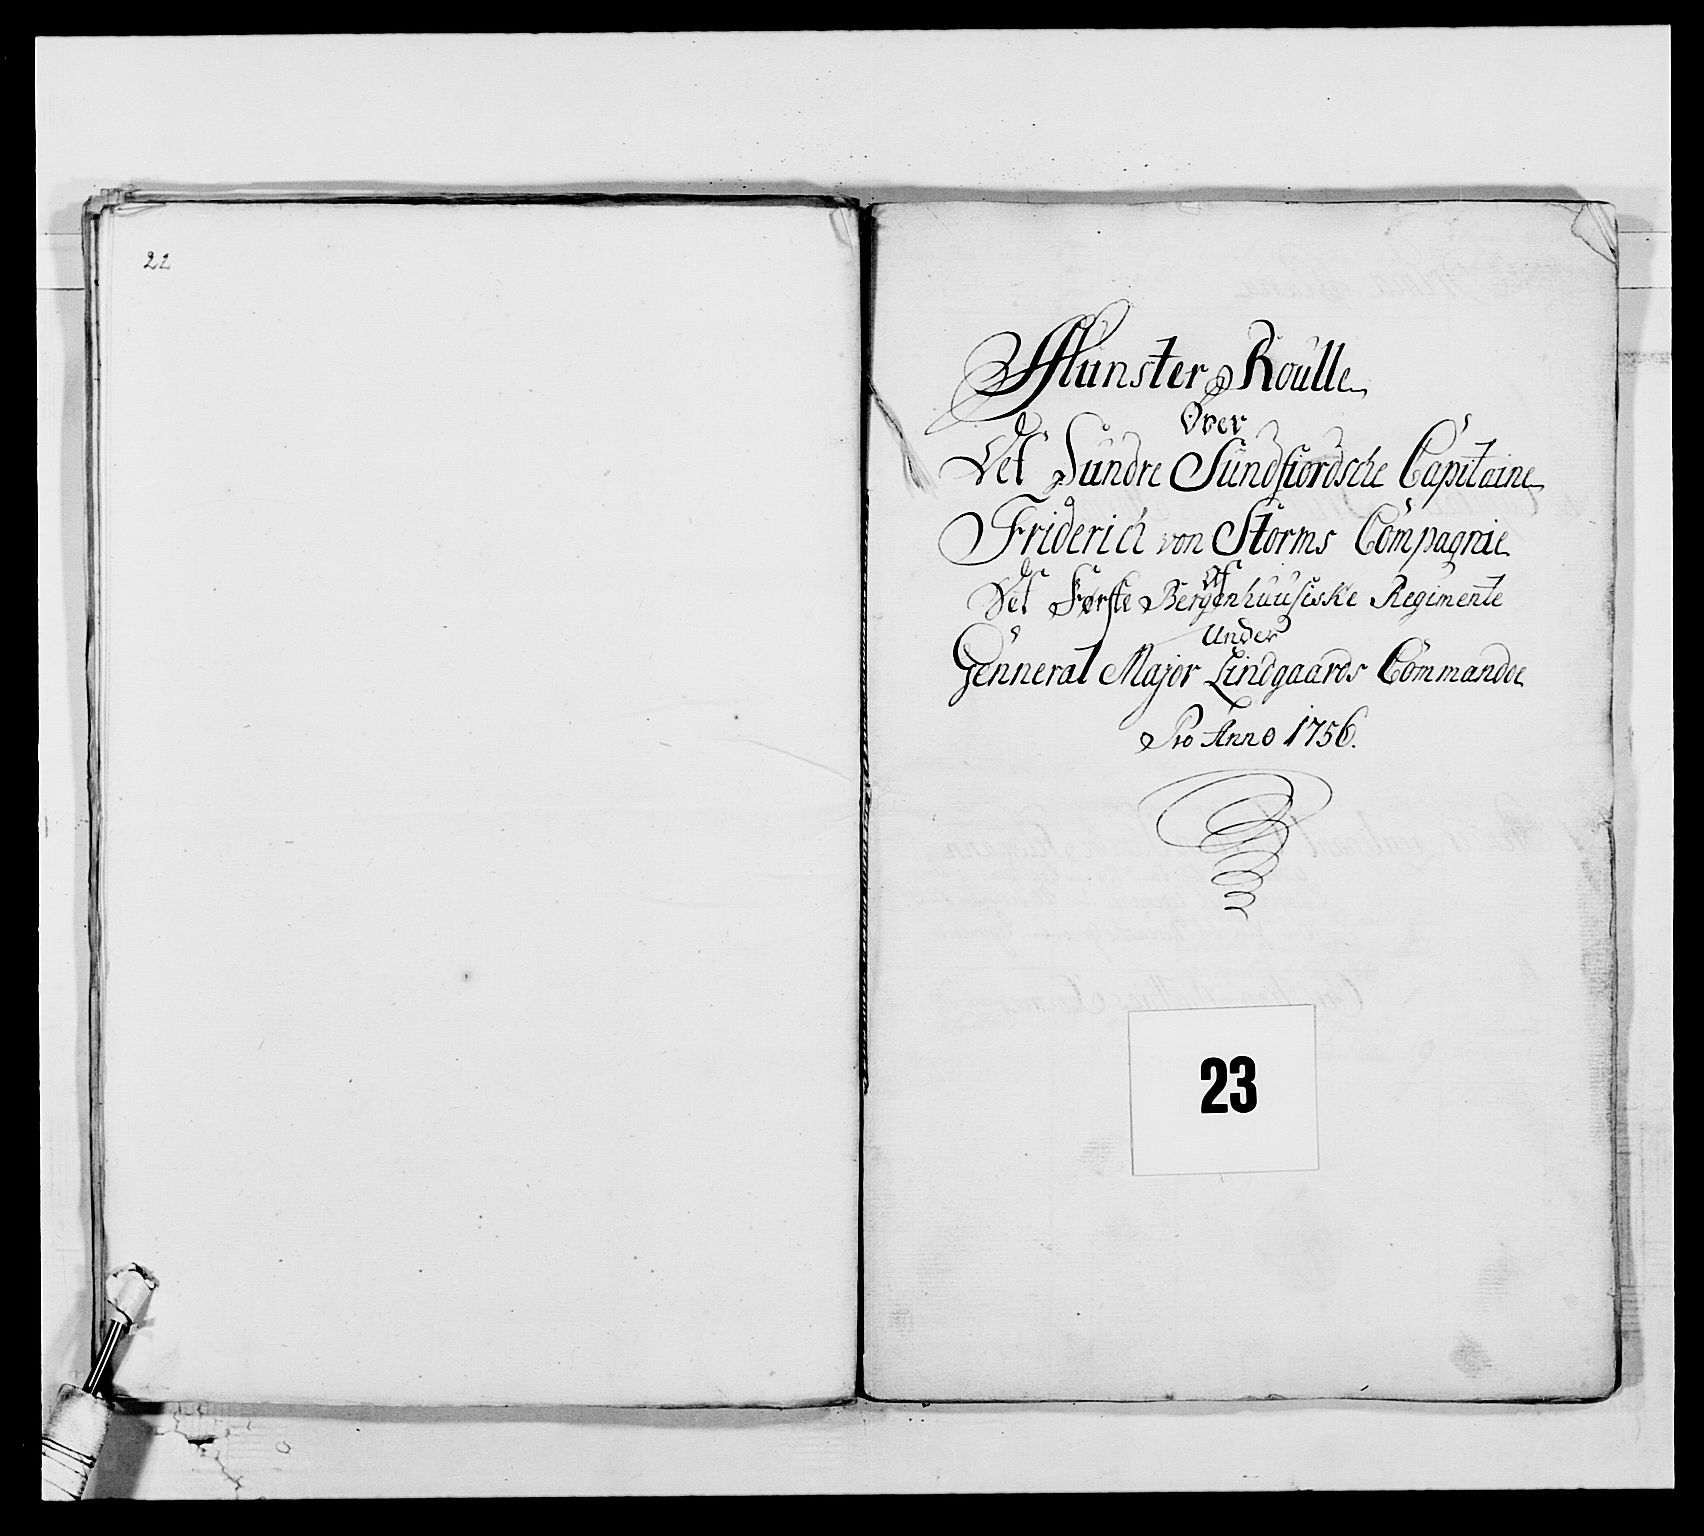 22
Munster Roulle
Over
Det Sundre Sundfiordsche Capitaine
Friderich von Storms Compagnie
Af
Det Første Bergenhuusiske Regimente
Under
Genneral Major Lindgaards Commandoe
Pro Anno 1756.
23